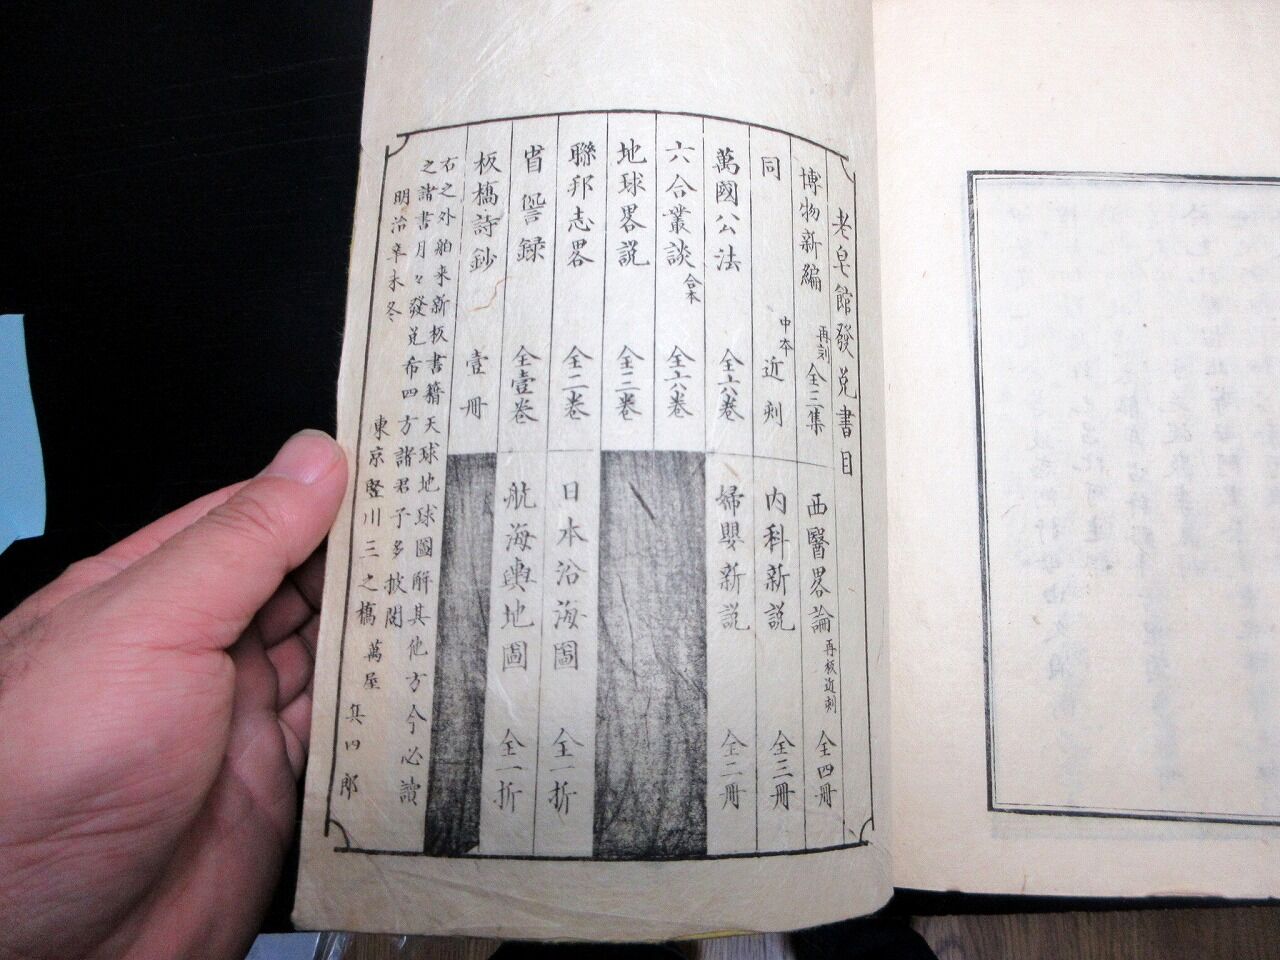 老皂館發兌書目
博物新編 再刻 全三集
西醫畧論 再板近刻 全四冊
同 中本 近刻
內科新説 全三冊
萬國公法 全六巻
婦嬰新説 全二冊
六合叢談 合本 全六巻
地球畧説 全三巻
聯邦志畧 全二巻
日本沿海圖 全一折
省諐録 全壹巻
航海輿地圖 全一折
板橋詩鈔 壹冊
右之外舶来新板書籍天球地球圖解其他方今必讀
之諸書月々發兌布四方諸君子多披閲
明治辛未冬
東京竪川三之橋 萬屋 兵四郎